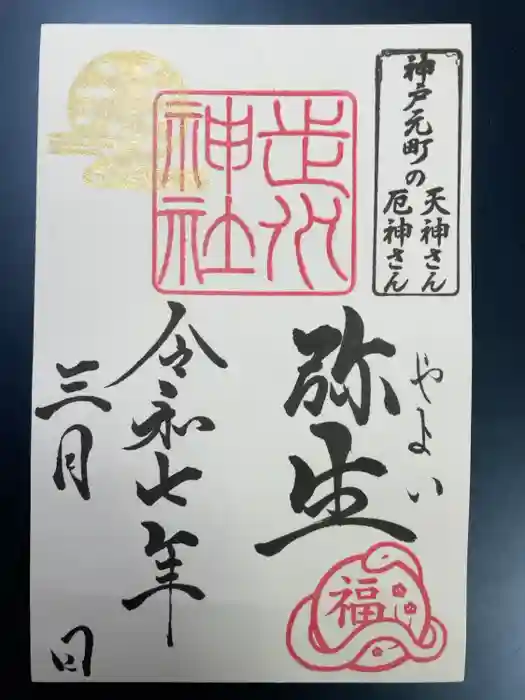 神戸元町の
天神さん
厄神さん
走水
神社
やよい
弥生
福
令和七年
三月 日